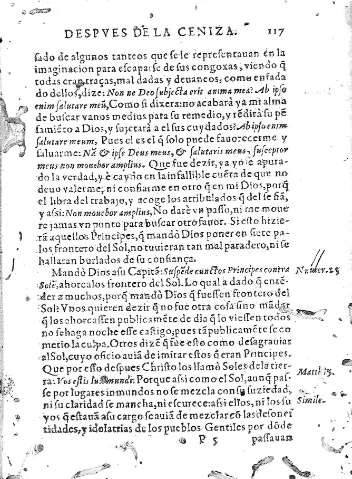 DESPVES DE LA CENIZA. 117
sado de algunos tanteos que se le representauan en la
imaginacion para escaparse de sus congoxas, viendo q̃
todas eran traças, mal dadas y deuaneos, como enfada
do dellos, dize: Non ne Deo subjecta erit anima mea? Ab ipso
enim salutare meũ, Como si dixera: no acabarà ya mi alma
de buscar vanos medios para su remedio, y rẽdirà su pẽ
samiẽto a Dios, y sujetarà a el sus cuydados? Ab ipso enim
salutare meum, Pues el es el q̃ solo puede fauorecerme y
saluarme: Nã & ipse Deus meus, & salutaris meus, susceptor
meus non mouebor amplius. Que fue dezir, ya yo lè apura-
do la verdad, y è caydo en la infallible cuẽta de que no
deuo valerme, ni confiarme en otro q̃ en mi Dios, porq̃
el libra del trabajo, y acoge los atribulados q̃ del se fiã,
y assi: Non mouebor amplius, No darè vn passo, ni me moue
re jamas vn punto para buscar otro fauor. Si esto hizie-
rã aquellos Principes, q̃ mandò Dios poner en siete pa-
los frontero del Sol, no tuuieran tan mal paradero, ni se
hallaran burlados de su confiança.
Mandò Dios a su Capitã: Suspẽde cunctos Principes contra
Solẽ, ahorcalos frontero del Sol. Lo qual a dado q̃ entẽ-
der a muchos, porq̃ mandò Dios q̃ fuessen frontero del
Sol: Vnos quieren dezir q̃ no fue otra cosa sino mãdar
q̃ los ahorcassen publicamẽte de dia q̃ lo viessen todos
no se haga noche este castigo, pues tã publicamẽte se co
metio la culpa. Otros dizẽ q̃ fue esto como desagrauias
al Sol, cuyo oficio auiã de imitar estos q̃ eran Principes.
Que por esso despues Christo los llamò Soles de la tier-
ra: Vos estis lux mundi. Porque assi como el Sol, aunq̃ pas-
se por lugares inmundos no se mezcla con su suziedad,
ni su claridad se mancha, ni escurece: assi ellos, ni los su
yos q̃ estauã a su cargo se auiã de mezclar cõ las desones
tidades, y idolatrias de los pueblos Gentiles por dõde
P 5 passauan
Numer. 25
Matth 13.
Simile.